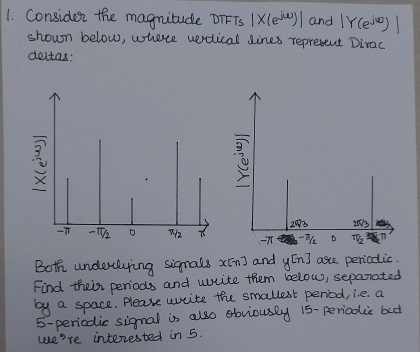 1. Consider the magnitude DTFTs |X(e^jω)| and |Y(e^jω)|
shown below, where vertical lines represent Dirac
deltas:
|X(e^jω)|
-π -π/2 0 π/2 π
|Y(e^jω)|
2π/3 2π/3
-π -π/2 0 π/2 π
Both underlying signals x[n] and y[n] are periodic.
Find their periods and write them below, separated
by a space. Please write the smallest period, i.e. a
5-periodic signal is also obviously 15-periodic but
we're interested in 5.